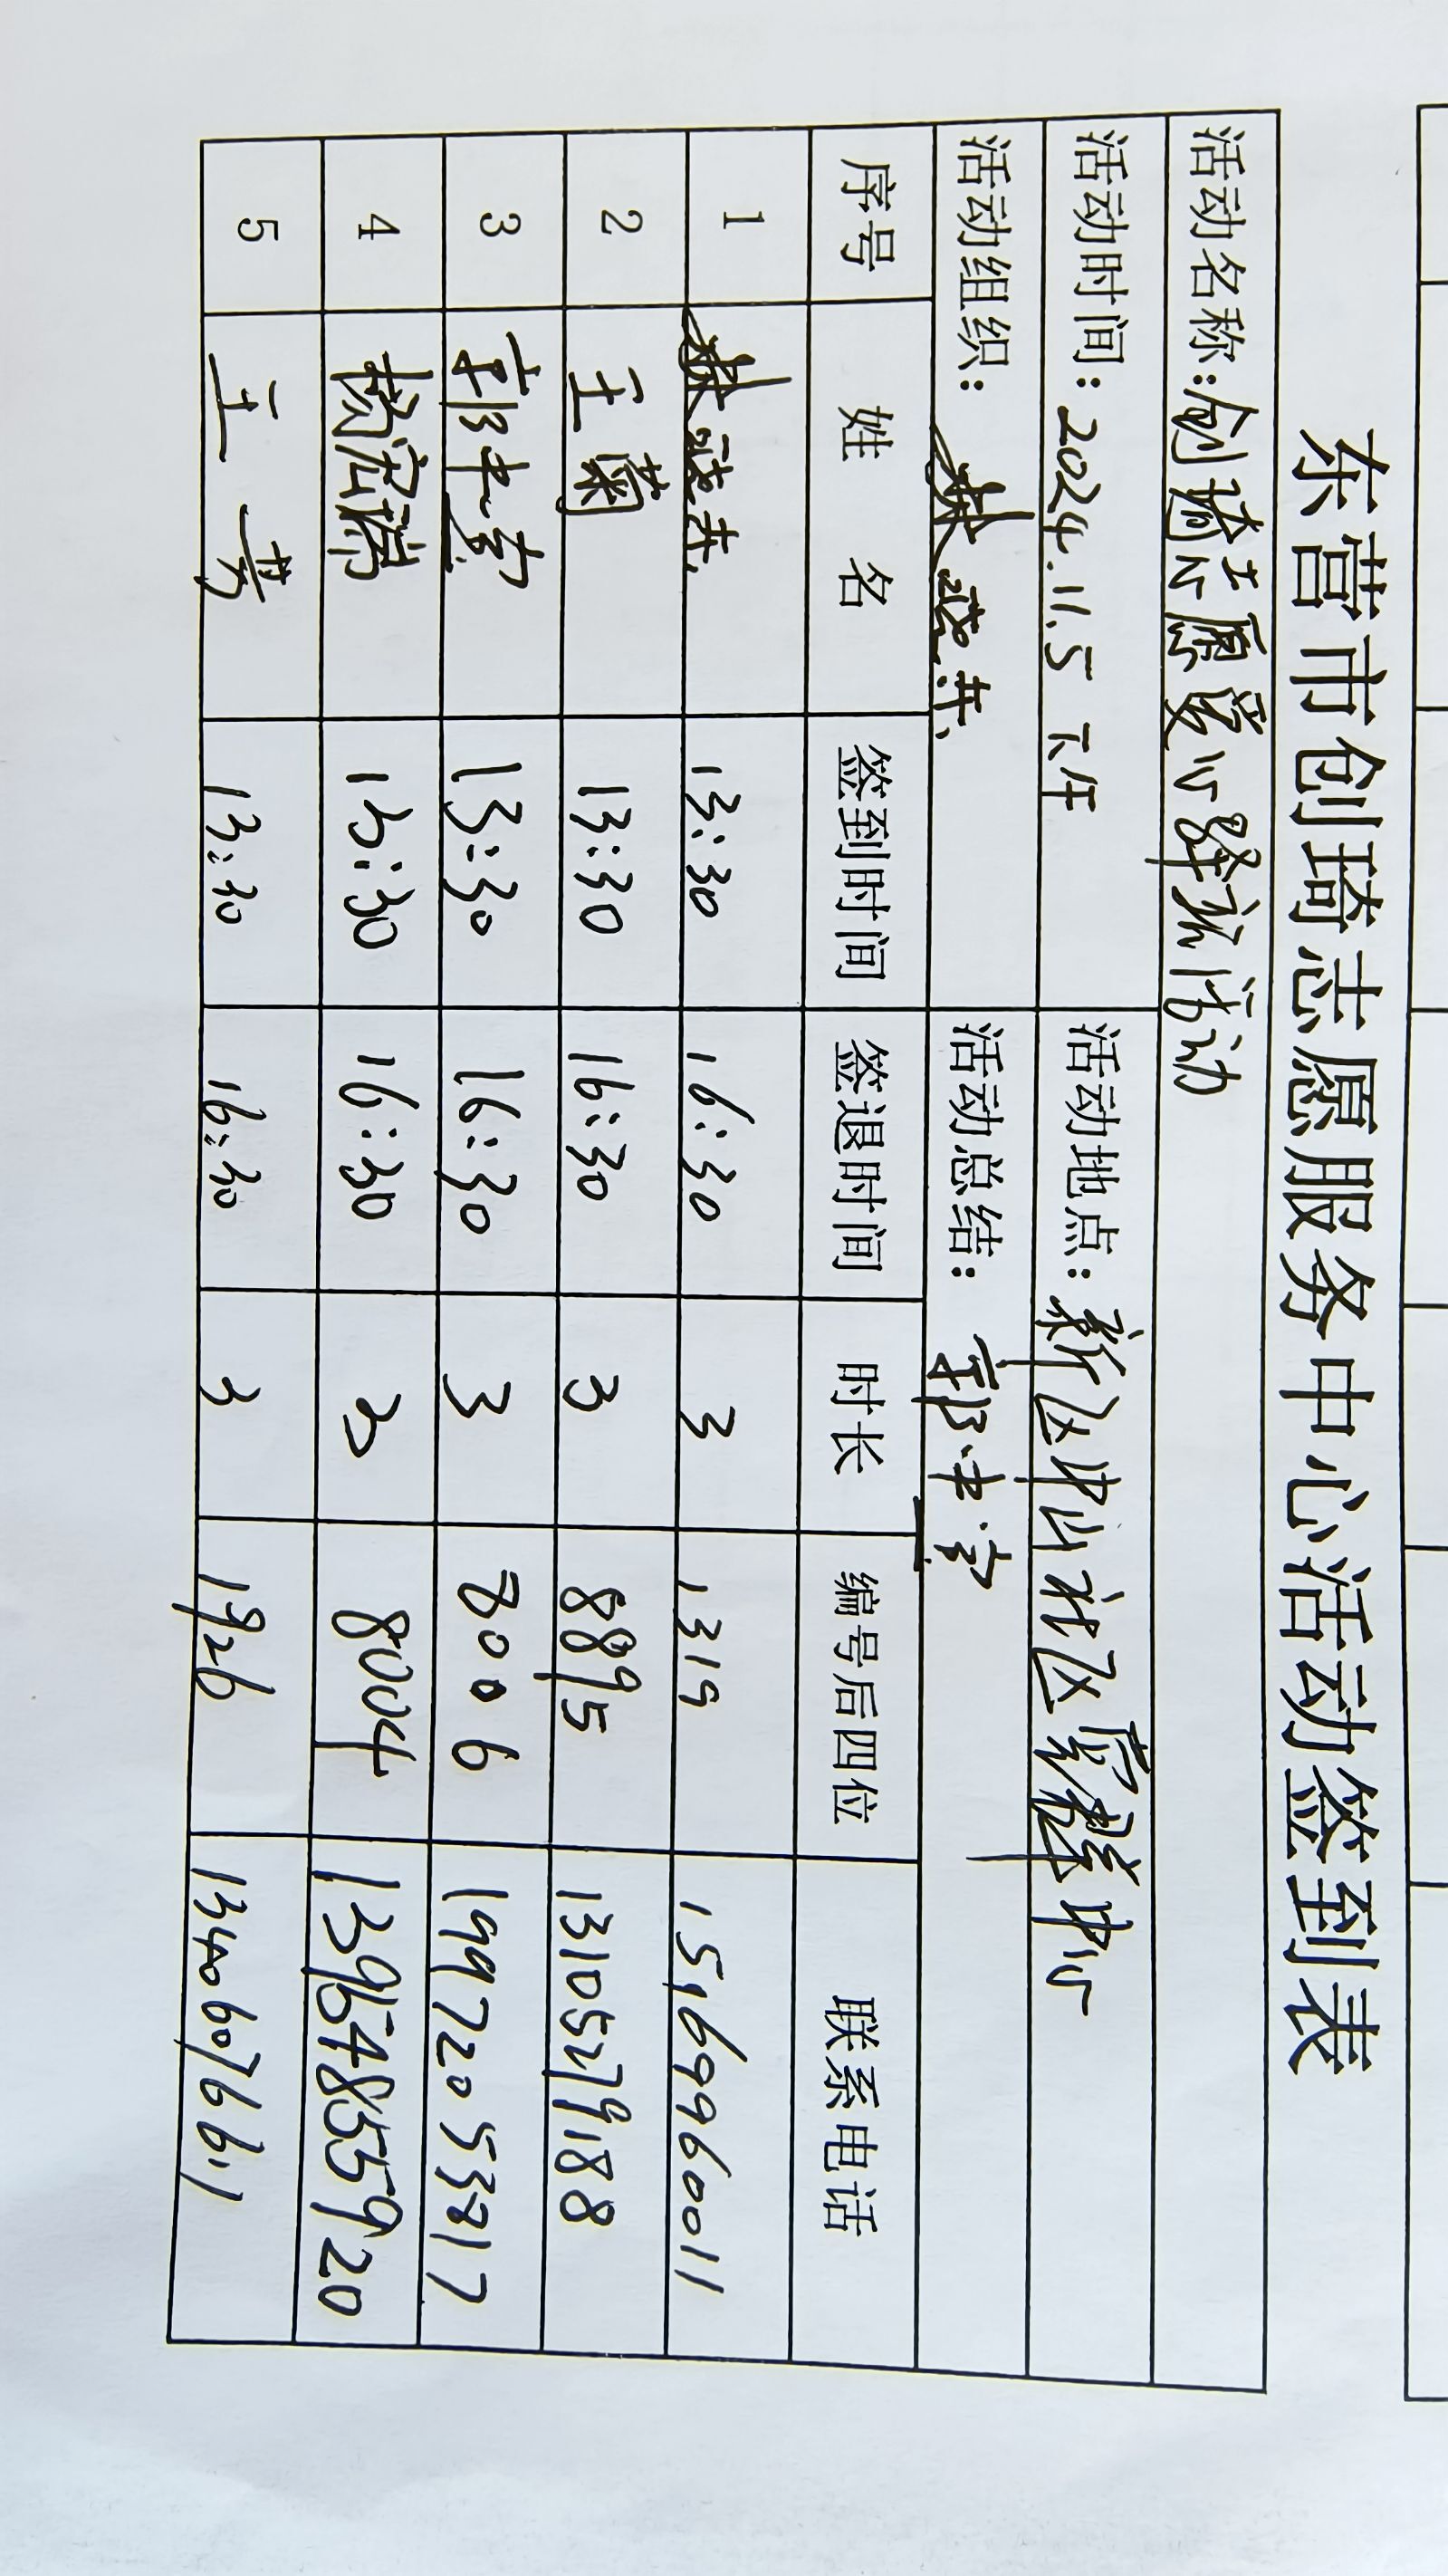 东营市创琦志愿服务中心活动签到表
活动名称：创琦志愿爱心驿站活动
活动时间：2024.11.5 下午 活动地点：新区中山社区党群中心
活动组织： 活动总结：郭
序号 姓名 签到时间 签退时间 时长 编号后四位 联系电话
1 13:30 16:30 3 1319 15169996011
2 王菊 13:30 16:30 3 8895 13105279188
3 郭 13:30 16:30 3 8006 19972053317
4 杨 13:30 16:30 3 8004 13954855920
5 王芳 13:30 16:30 3 1926 13406076611